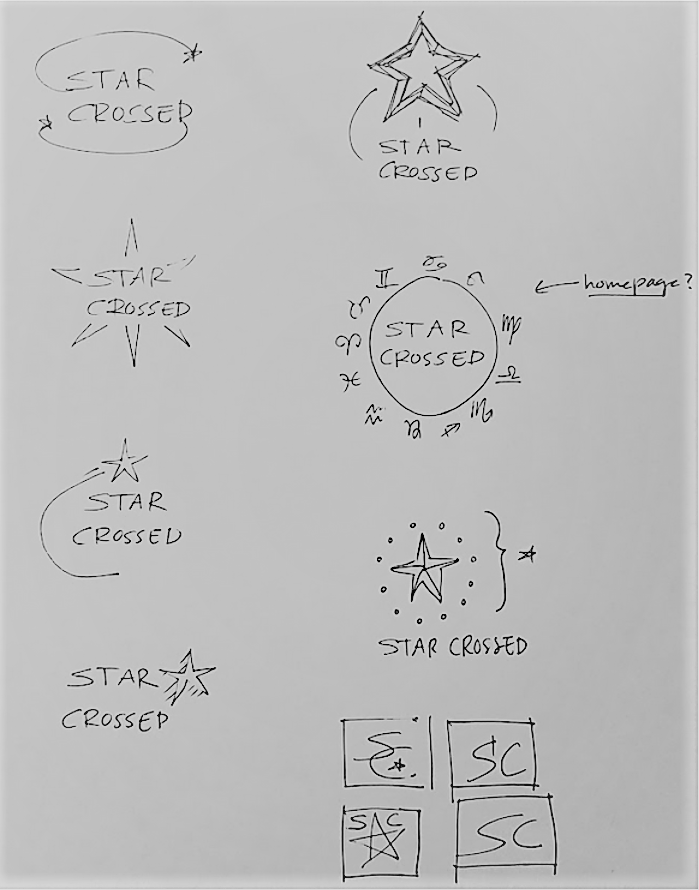 STAR
CROSSED
STAR
CROSSED
STAR
CROSSED
STAR
CROSSED
STAR
CROSSED
♋ ♌ ♍ ♎ ♏ ♐ ♑ ♒ ♓ ♈ ♉ ♊
STAR
CROSSED
← homepage?
STAR CROSSED
SC
SC
SC
SC